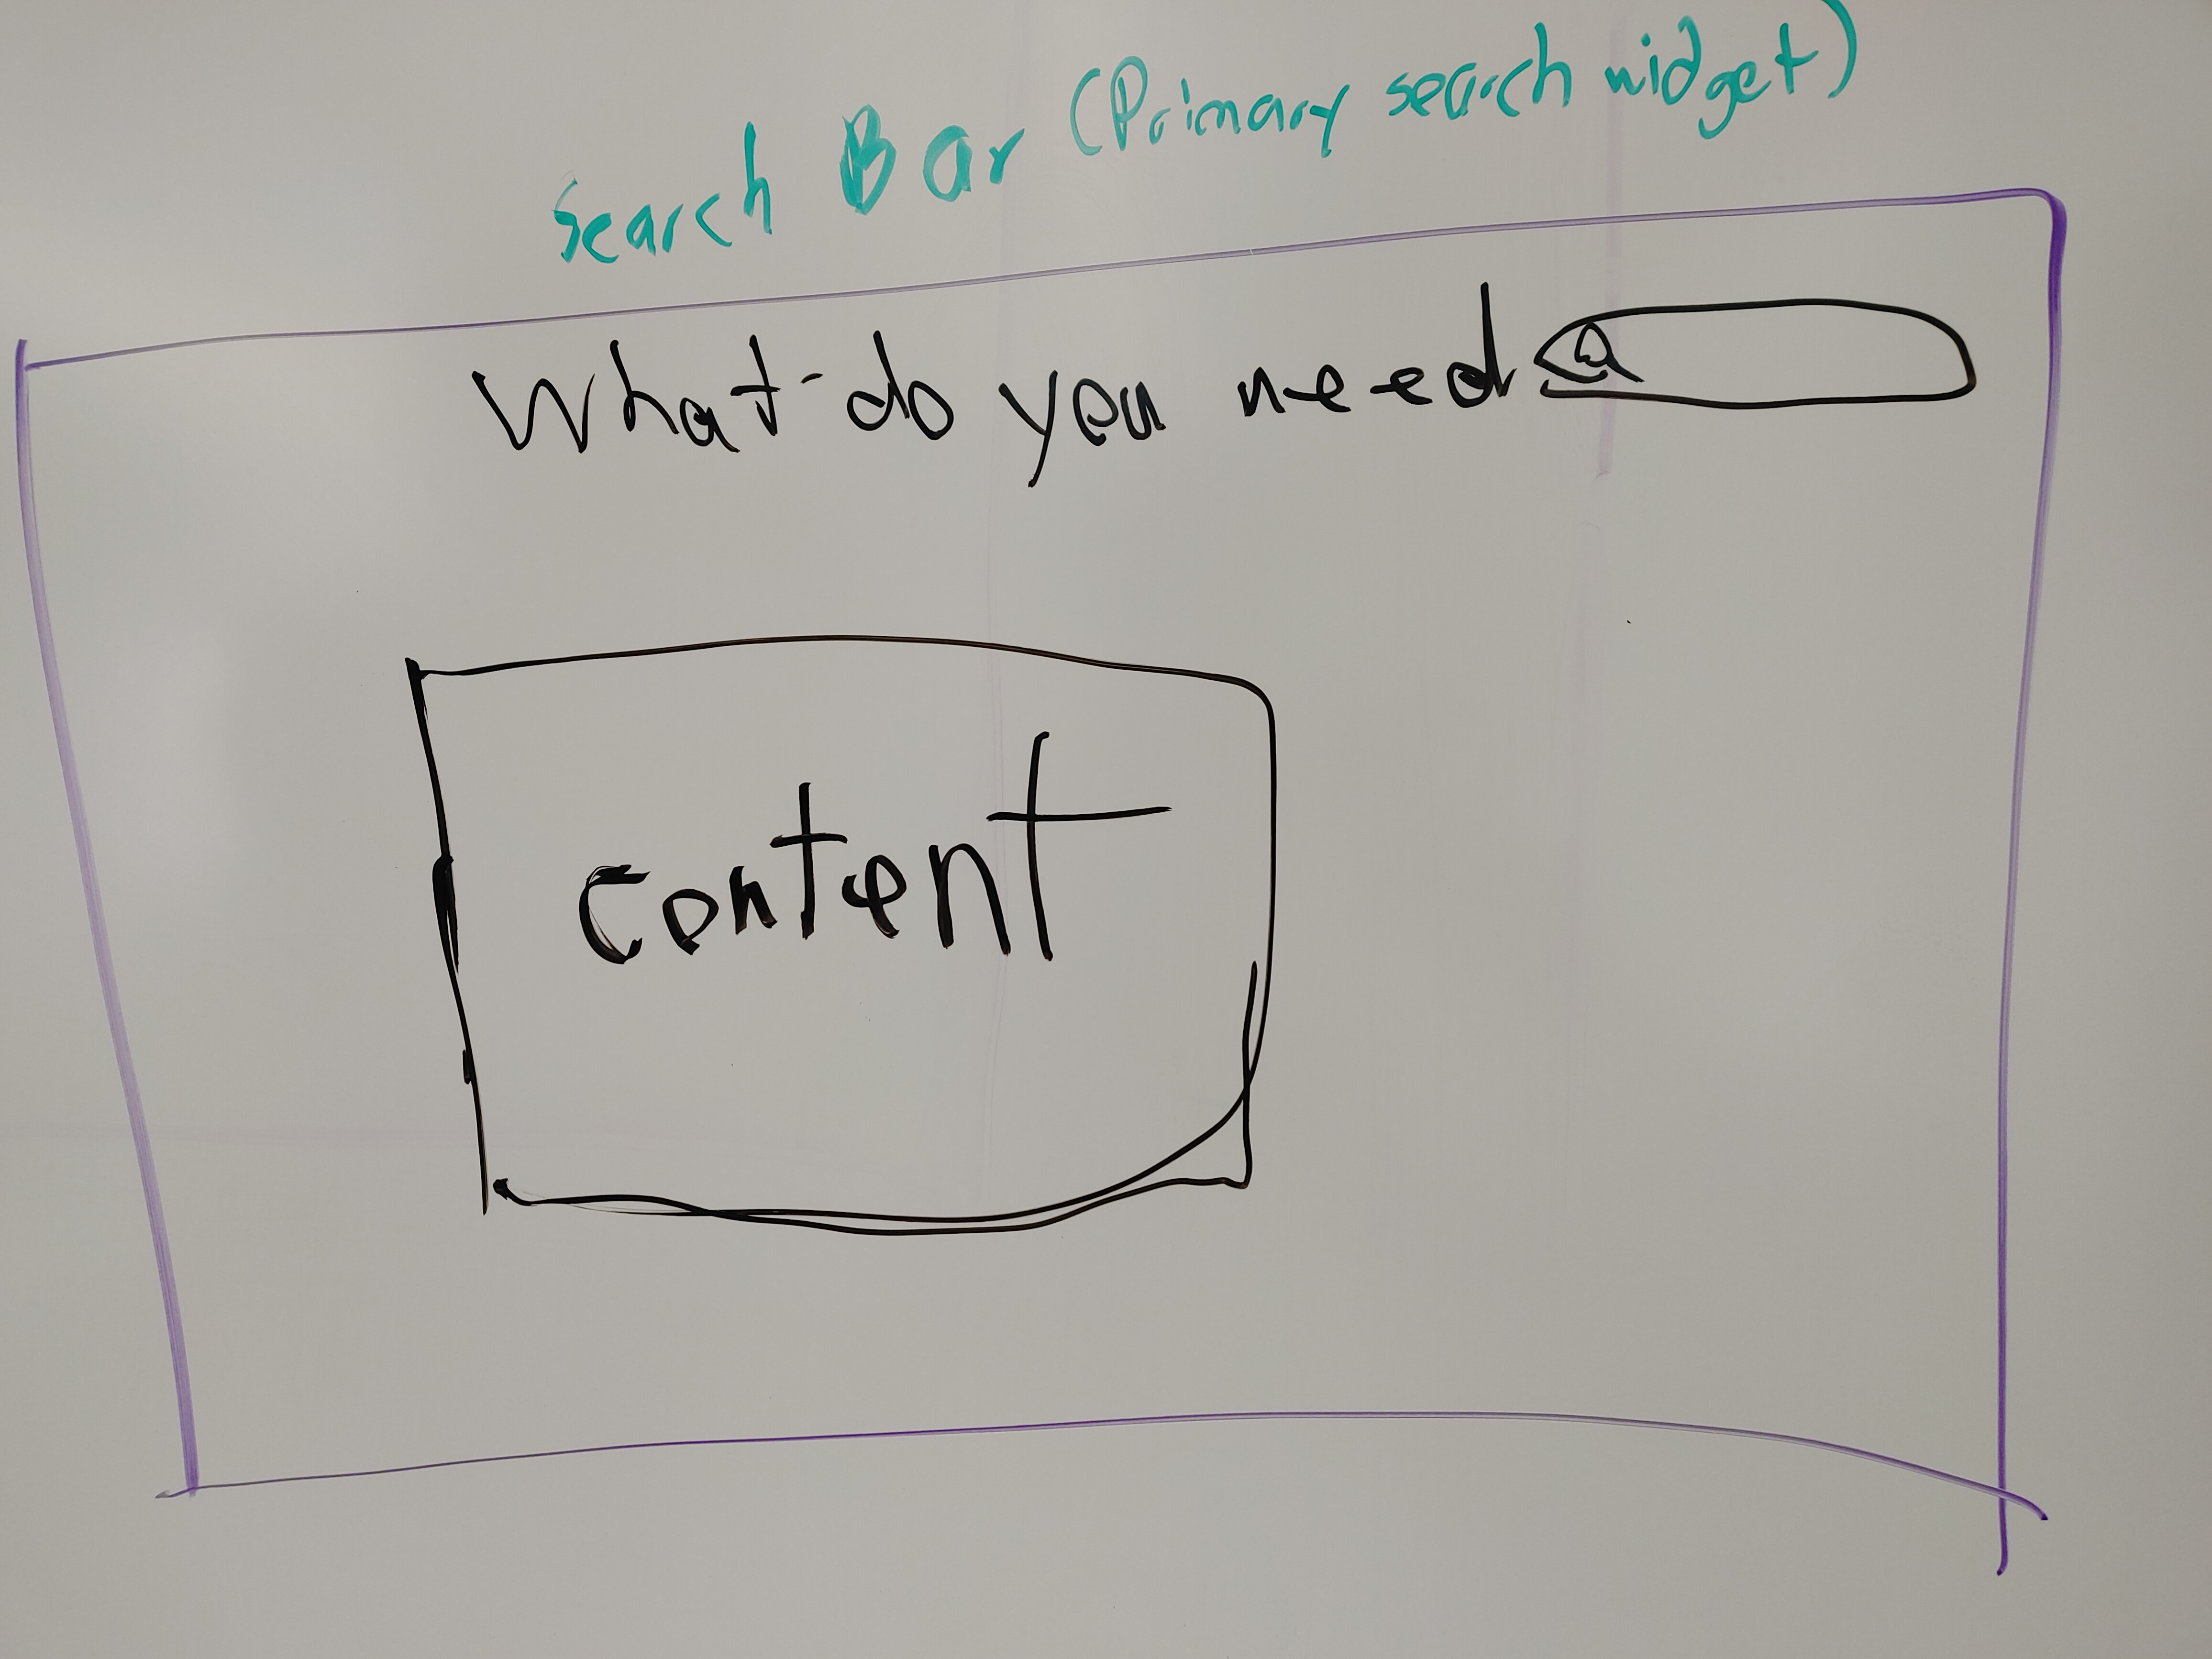 Search Bar (Primary search widget)
What do you need
Content